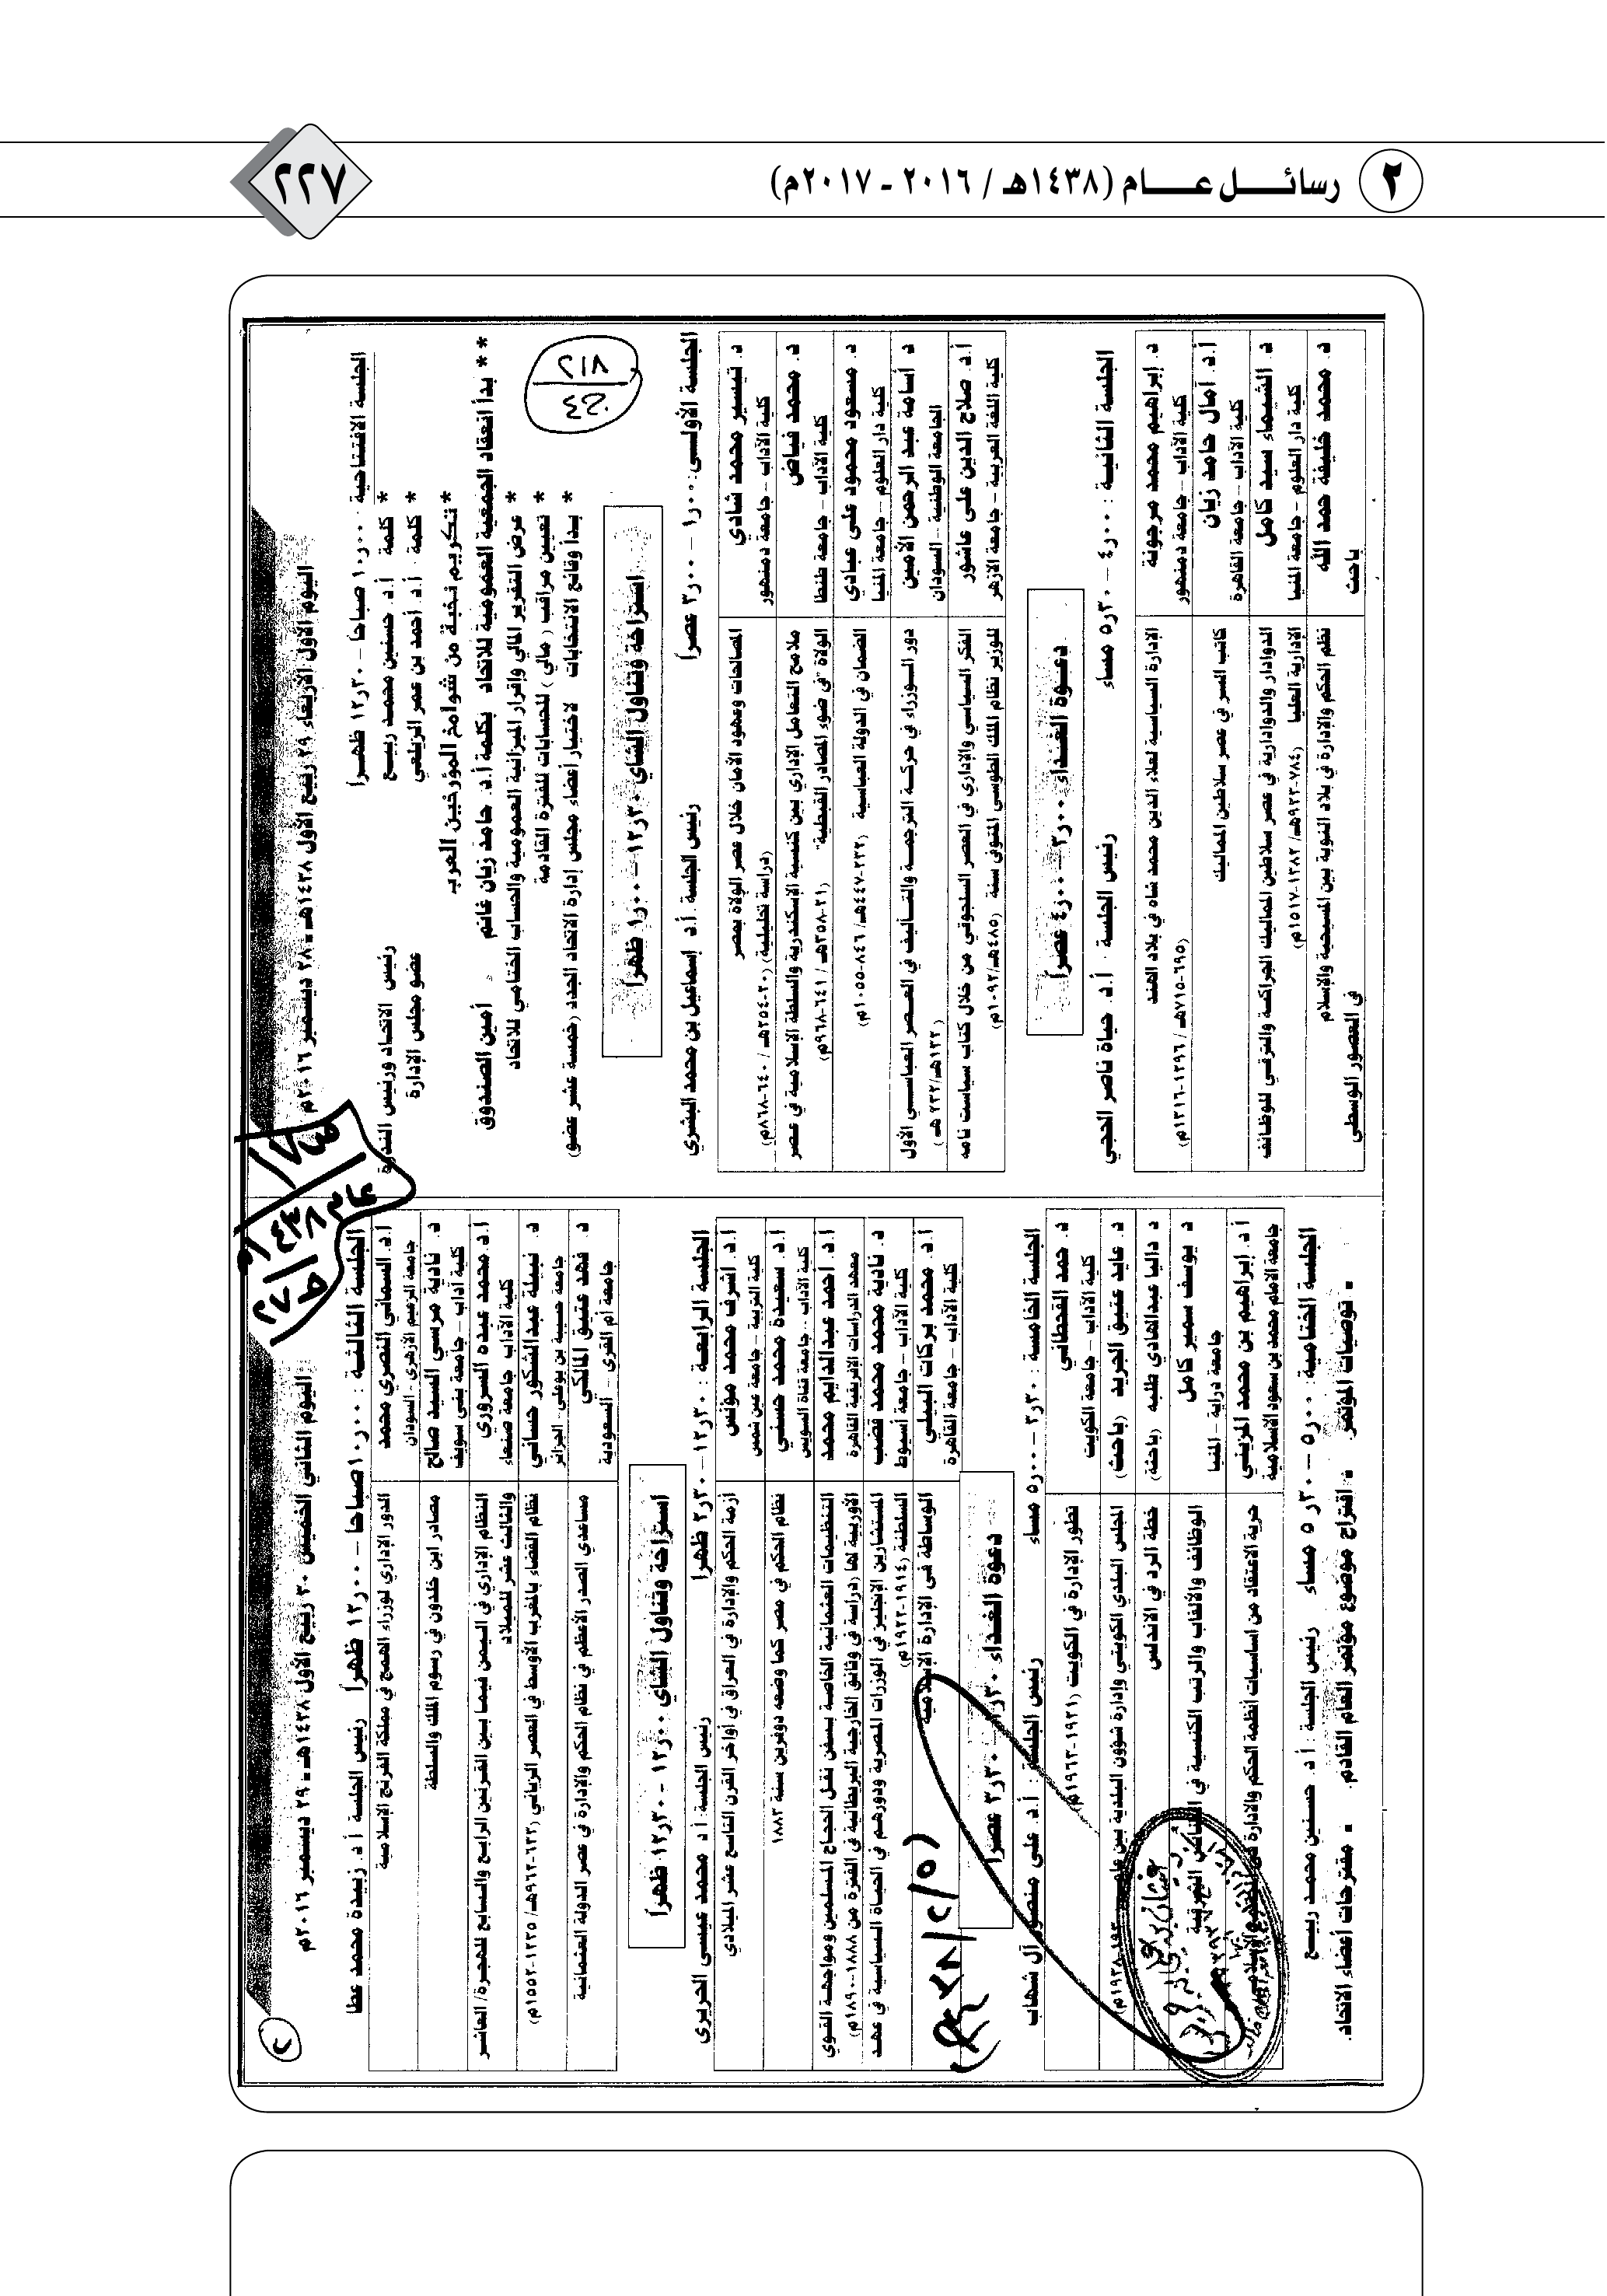 ٢ رسائل عام (١٤٣٨هـ / ٢٠١٦ ـ ٢٠١٧م)
٢٢٧
اليوم الأول الأربعاء ٢٩ ربيع الأول ١٤٣٨هـ - ٢٨ ديسمبر ٢٠١٦م
الجلسة الافتتاحية ١٠٫٠٠ صباحا – ١٢٫٣٠ ظهرا
* كلمة أ.د حسنين محمد ربيع رئيس الاتحاد ورئيس الندوة
* كلمة أ.د أحمد بن عمر الزيلعي عضو مجلس الإدارة
* تكريم نخبة من شوامخ المؤرخين العرب
* * بدأ انعقاد الجمعية العمومية للاتحاد بكلمة أ.د. حامد زيان غانم أمين الصندوق
* عرض التقرير المالي وإقرار الميزانية العمومية والحساب الختامي للاتحاد
* تعيين مراقب (مالي) للحسابات للفترة القادمة
* بدأ وقائع الانتخابات لاختيار أعضاء مجلس إدارة الاتحاد الجدد (خمسة عشر عضو)
استراحة وتناول الشاي ١٢٫٣٠ – ١٫٠٠ ظهرا
الجلسة الأولى: ١٫٠٠ – ٣٫٠٠ عصرا رئيس الجلسة أ.د إسماعيل بن محمد البشري
د. تيسير محمد شادي
كلية الآداب – جامعة دمنهور
المصالحات وعهود الأمان خلال عصر الولاة بمصر
(دراسة تحليلية) (٢٠-٢٥٤هـ / ٦٤٠-٨٦٨م)
د. محمد فياض
كلية الآداب – جامعة طنطا
ملامح التعامل الإداري بين كنيسة الإسكندرية والسلطة الإسلامية في عصر
الولاة "في ضوء المصادر القبطية" (٢١-٣٥٨هـ / ٦٤١-٩٦٨م)
د. مسعود محمود على عبادي
كلية دار العلوم – جامعة المنيا
الضمان في الدولة العباسية (٢٣٢-٤٤٧هـ / ٨٤٦-١٠٥٥م)
د أسامة عبد الرحمن الأمين
الجامعة الوطنية – السودان
دور الوزراء في حركة الترجمة والتأليف في العصر العباسي الأول
(١٣٢هـ/٢٣٢هـ)
أ.د. صلاح الدين على عاشور
كلية اللغة العربية – جامعة الأزهر
الفكر السياسي والإداري في العصر السلجوقي من خلال كتاب سياست نامه
للوزير نظام الملك الطوسي المتوفى سنة (٤٨٥هـ/١٠٩٢م)
دعوة الغداء ٣٫٠٠ – ٤٫٠٠ عصرا
الجلسة الثانية : ٤٫٠٠ – ٥٫٣٠ مساء رئيس الجلسة : أ.د. حياة ناصر الحجي
د. إبراهيم محمد مرجونة
كلية الآداب – جامعة دمنهور
الإدارة السياسية لعلاء الدين محمد شاه في بلاد الهند
(٦٩٥-٧١٥هـ / ١٢٩٦-١٣١٦م)
أ.د. أمال حامد زيان
كلية الآداب – جامعة القاهرة
كاتب السر في عصر سلاطين المماليك
د الشيماء سيد كامل
كلية دار العلوم – جامعة المنيا
الدوادار والدوادارية في عصر سلاطين المماليك الجراكسة والترقي للوظائف
الإدارية العليا (٧٨٤-٩٢٣هـ / ١٣٨٢-١٥١٧م)
د. محمد خليفة حمد الله
باحث
نظم الحكم والإدارة في بلاد النوبة بين المسيحية والإسلام
في العصور الوسطى
اليوم الثاني الخميس ٣٠ ربيع الأول ١٤٣٨هـ - ٢٩ ديسمبر ٢٠١٦م
الجلسة الثالثة : ١٠٫٠٠ صباحا – ١٢٫٠٠ ظهرا رئيس الجلسة أ.د. زبيدة محمد عطا
أ.د. السماني النصري محمد
جامعة الزعيم الأزهري - السودان
الدور الإداري لوزراء الهمج في مملكة الفونج الإسلامية
د. نادية مرسي السيد صالح
كلية آداب – جامعة بني سويف
مصادر ابن خلدون في رسوم الملك والسلطة
أ.د. محمد عبده السروري
كلية الآداب جامعة صنعاء
النظام الإداري في اليمن فيما بين القرنين الرابع والسابع للهجرة/ العاشر
والثالث عشر للميلاد
د. نبيلة عبد الشكور حساني
جامعة حسيبة بن بوعلي - الجزائر
نظام القضاء بالمغرب الأوسط في العصر الزياني (٦٣٣-٩٦٢هـ / ١٢٣٥-١٥٥٢م)
د. فهد عتيق المالكي
جامعة أم القرى – السعودية
مساعدي الصدر الأعظم في نظام الحكم والإدارة في عصر الدولة العثمانية
استراحة وتناول الشاي ١٢٫٠٠ - ١٢٫٣٠ ظهرا
الجلسة الرابعة : ١٢٫٣٠ – ٢٫٣٠ ظهرا رئيس الجلسة: أ.د محمد عيسى الحريري
أ.د. أشرف محمد مؤنس
كلية التربية – جامعة عين شمس
أزمة الحكم والإدارة في العراق في أواخر القرن التاسع عشر الميلادي
أ.د سعيدة محمد حسني
كلية الآداب – جامعة قناة السويس
نظام الحكم في مصر كما وضعه دوفرين سنة ١٨٨٣
أ.د. أحمد عبدالدايم محمد
معهد الدراسات الإفريقية القاهرة
التنظيمات العثمانية الخاصة بسفن نقل الحجاج المسلمين ومواجهة القوي
الأوربية لها (دراسة في وثائق الخارجية البريطانية في الفترة من ١٨٨٨-١٨٩٠م)
د. نادية محمد محمد قضب
كلية الآداب – جامعة أسيوط
المستشارين الإنجليز في الوزارات المصرية ودورهم في الحياة السياسية في عهد
السلطنة (١٩١٤-١٩٢٢م)
أ.د. محمد بركات البيلي
كلية الآداب – جامعة القاهرة
الوساطة في الإدارة الإسلامية
دعوة الغداء ٢٫٣٠ – ٣٫٣٠ عصرا
الجلسة الخامسة : ٣٫٣٠ – ٥٫٠٠ مساء رئيس الجلسة : أ.د. على منصور آل شهاب
د. حمد القحطاني
كلية الآداب – جامعة الكويت
تطور الإدارة في الكويت (١٩٢١-١٩٦٢م)
د. عايد عتيق الجريد (باحث)
المجلس البلدي الكويتي وإدارة شؤون البلدية بين عامي
د داليا عبدالهادي طلبه (باحثة)
خطة الرد في الأندلس
د يوسف سمير كامل
جامعة دراية – المنيا
الوظائف والألقاب والرتب الكنسية في الكنائس الشرقية
أ.د. إبراهيم بن محمد المزيني
جامعة الإمام محمد بن سعود الإسلامية
حرية الاعتقاد من أساسيات أنظمة الحكم والإدارة في المجتمع الإسلامي
الجلسة الختامية: ٥٫٠٠ – ٥٫٣٠ مساء رئيس الجلسة : أ.د حسنين محمد ربيع
▪ توصيات المؤتمر ▪ اقتراح موضوع مؤتمر العام القادم. ▪ مقترحات أعضاء الاتحاد.